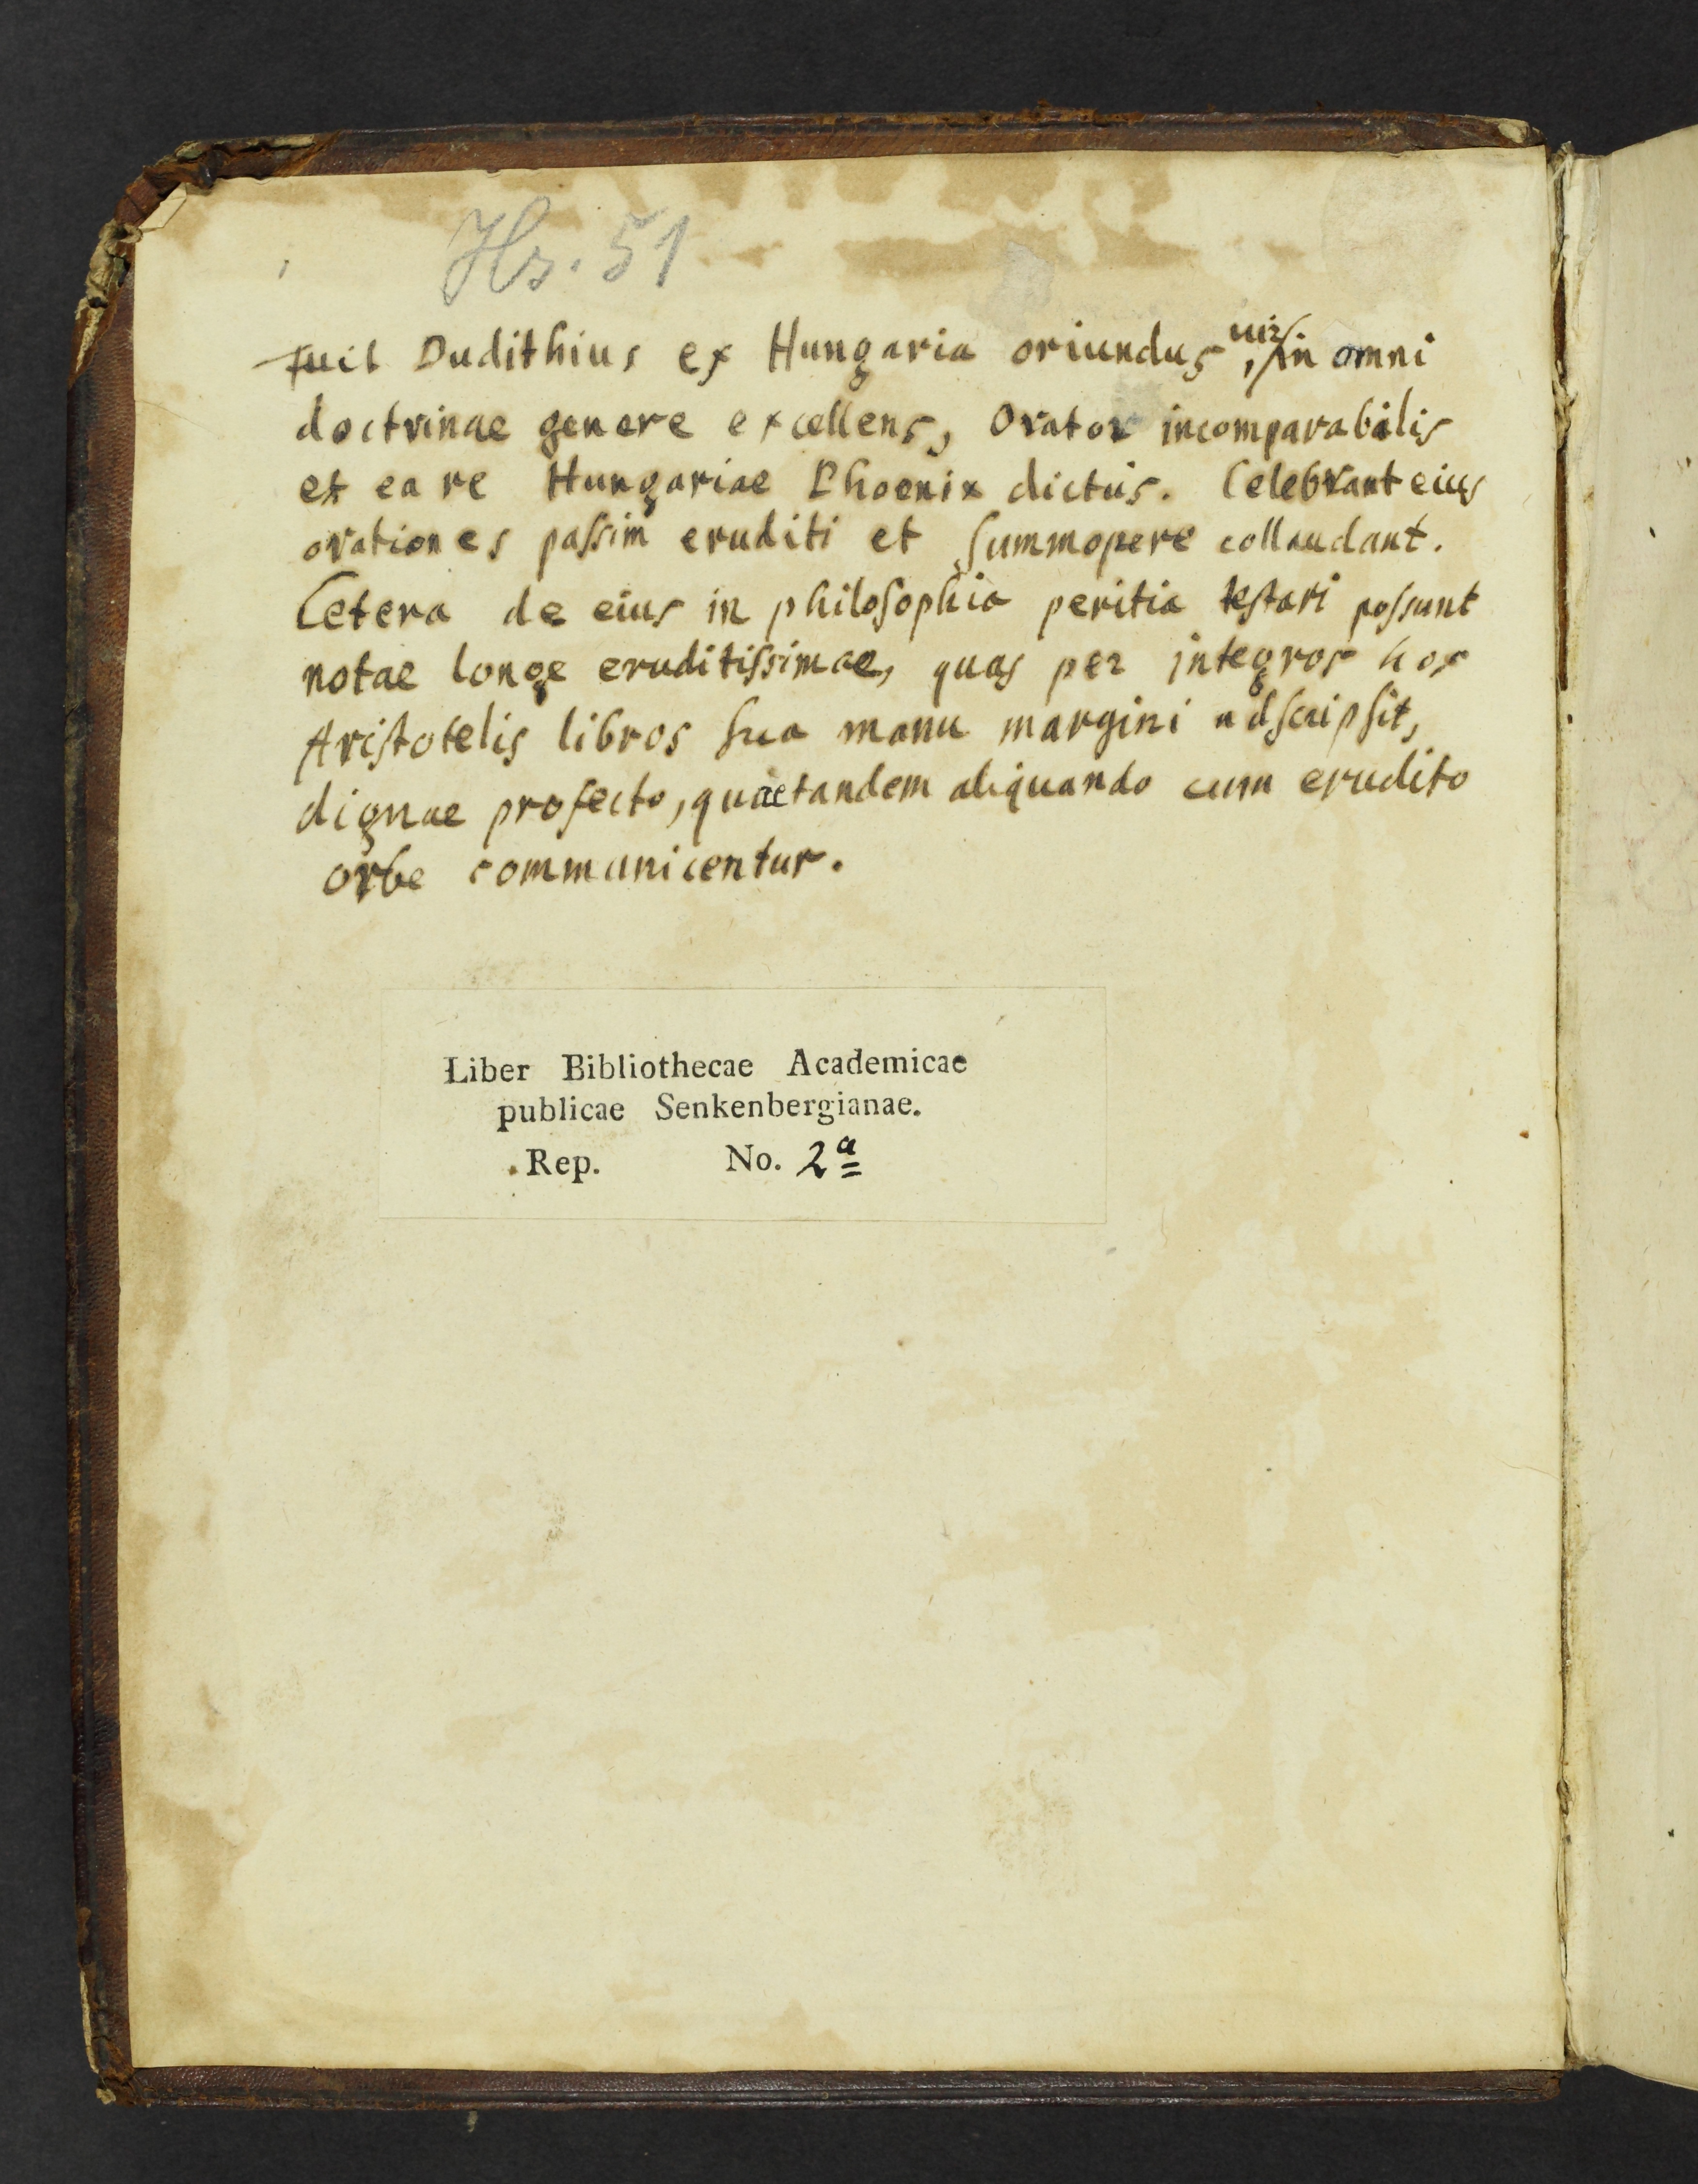 Hs. 51
Fuit Dudithius ex Hungaria oriundus, uir in omni
doctrinae genere excellens, Orator incomparabilis
et ea re Hungariae Phoenix dictus. Celebrant eius
orationes paſsim eruditi et ſummopere collaudant.
Cetera de eius in philoſophia peritia teſtari poſsunt
notae longe eruditiſsimae, quas per integros hos
Ariſtotelis libros ſua manu margini adſcripſit,
dignae profecto, quae tandem aliquando cum erudito
orbe communicentur.
Liber Bibliothecae Academicae
publicae Senkenbergianae.
Rep. No. 2a